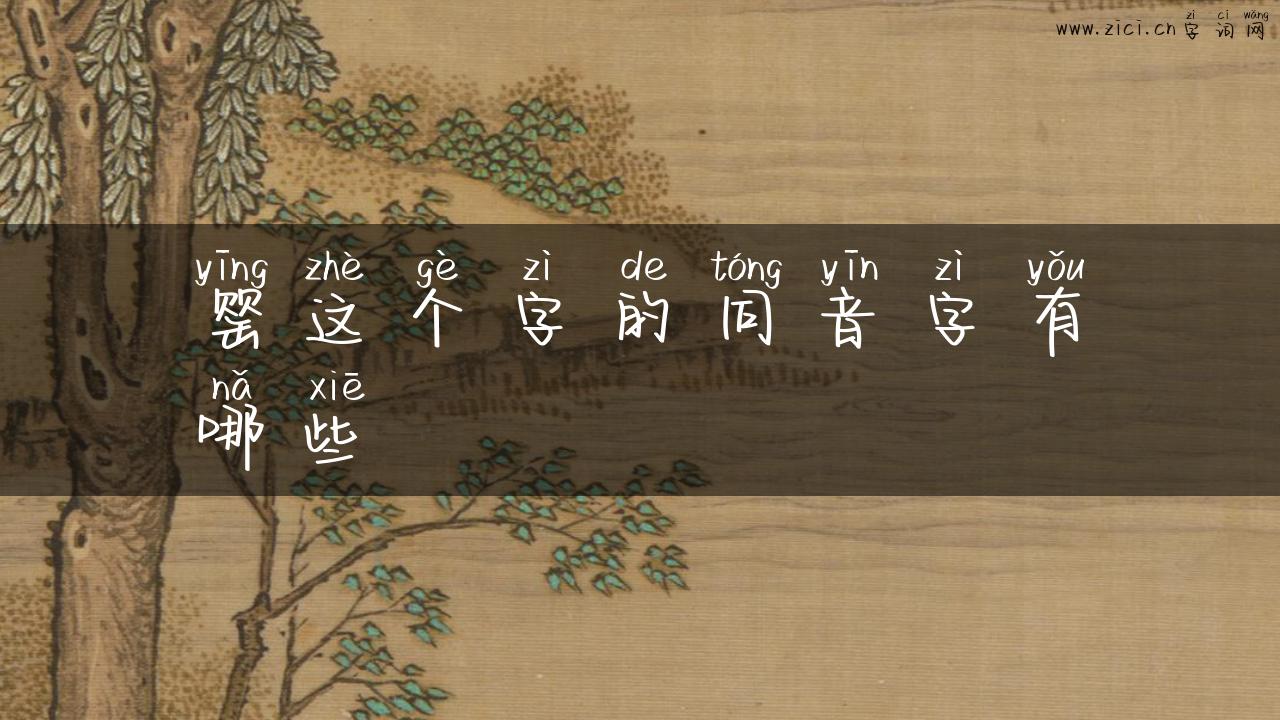 zì cí wǎng
www.zici.cn 字词网
yīng zhè gè zì de tóng yīn zì yǒu
罂这个字的同音字有
nǎ xiē
哪些